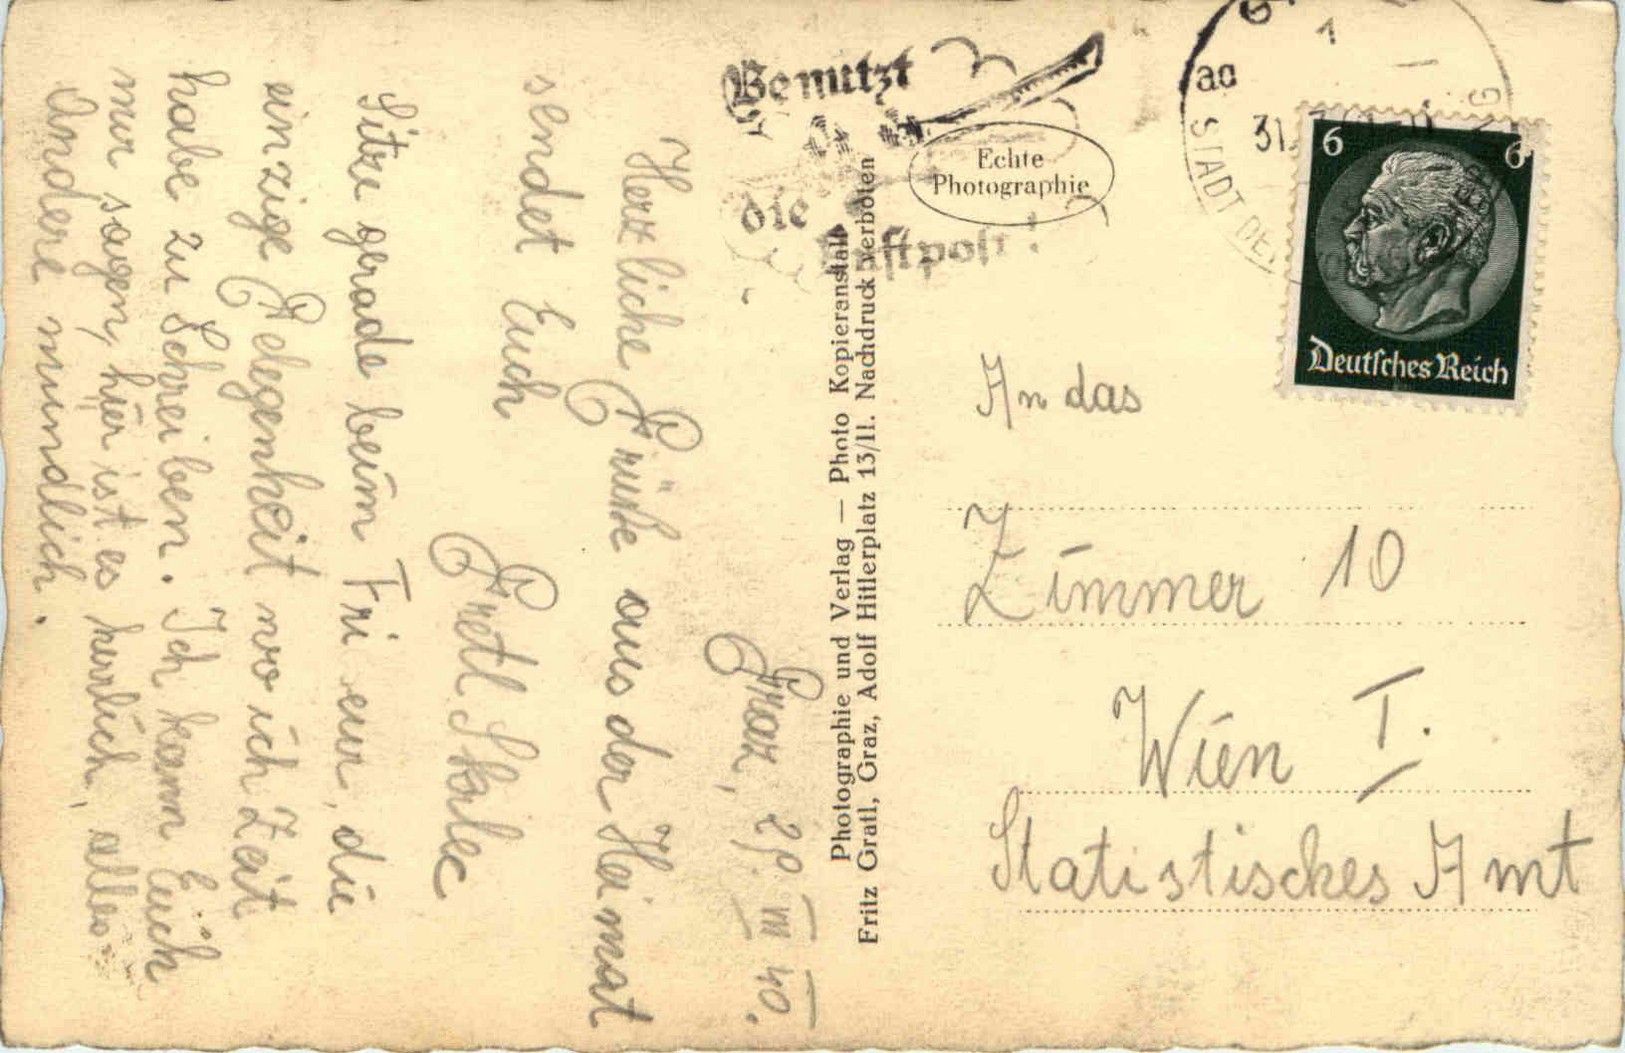 Graz, 29. III 40.
Herzliche Grüße aus der Heimat
sendet Euch
Gretl Skalec
Sitze gerade beim Friseur, die
einzige Gelegenheit wo ich Zeit
habe zu Schreiben. Ich kann Euch
nur sagen, hier ist es herrlich, alles
Andere mündlich.
Photographie und Verlag — Photo Kopieranstalt
Fritz Gratl, Graz, Adolf Hitlerplatz 13/II. Nachdruck verboten
Benutzt
die
Luftpost!
Echte
Photographie
1
31.
STADT DER
6 6
Deutsches Reich
An das
Zimmer 10
Wien I.
Statistisches Amt